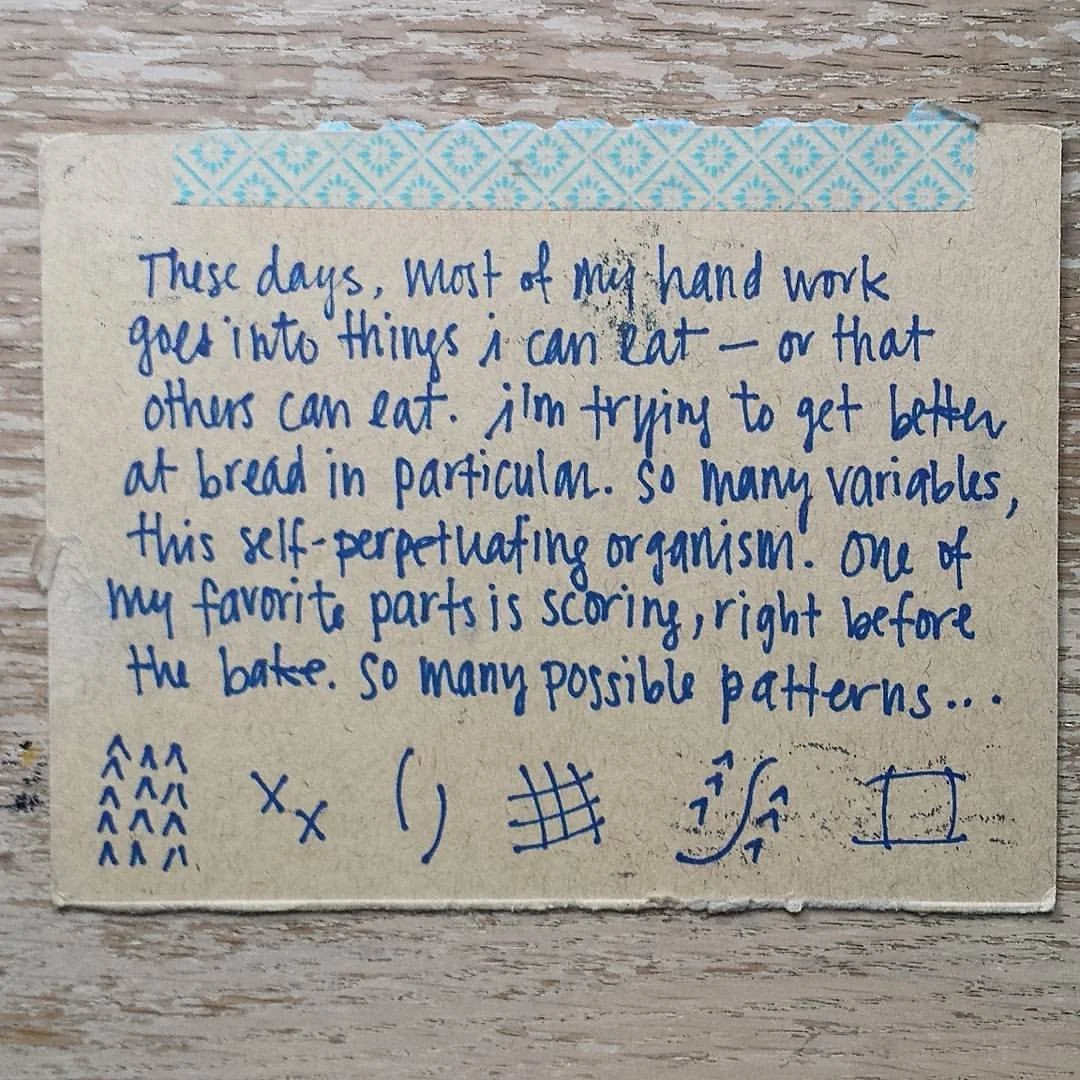 These days, most of my hand work
goes into things i can eat — or that
others can eat. i'm trying to get better
at bread in particular. so many variables,
this self-perpetuating organism. one of
my favorite parts is scoring, right before
the bake. so many possible patterns...